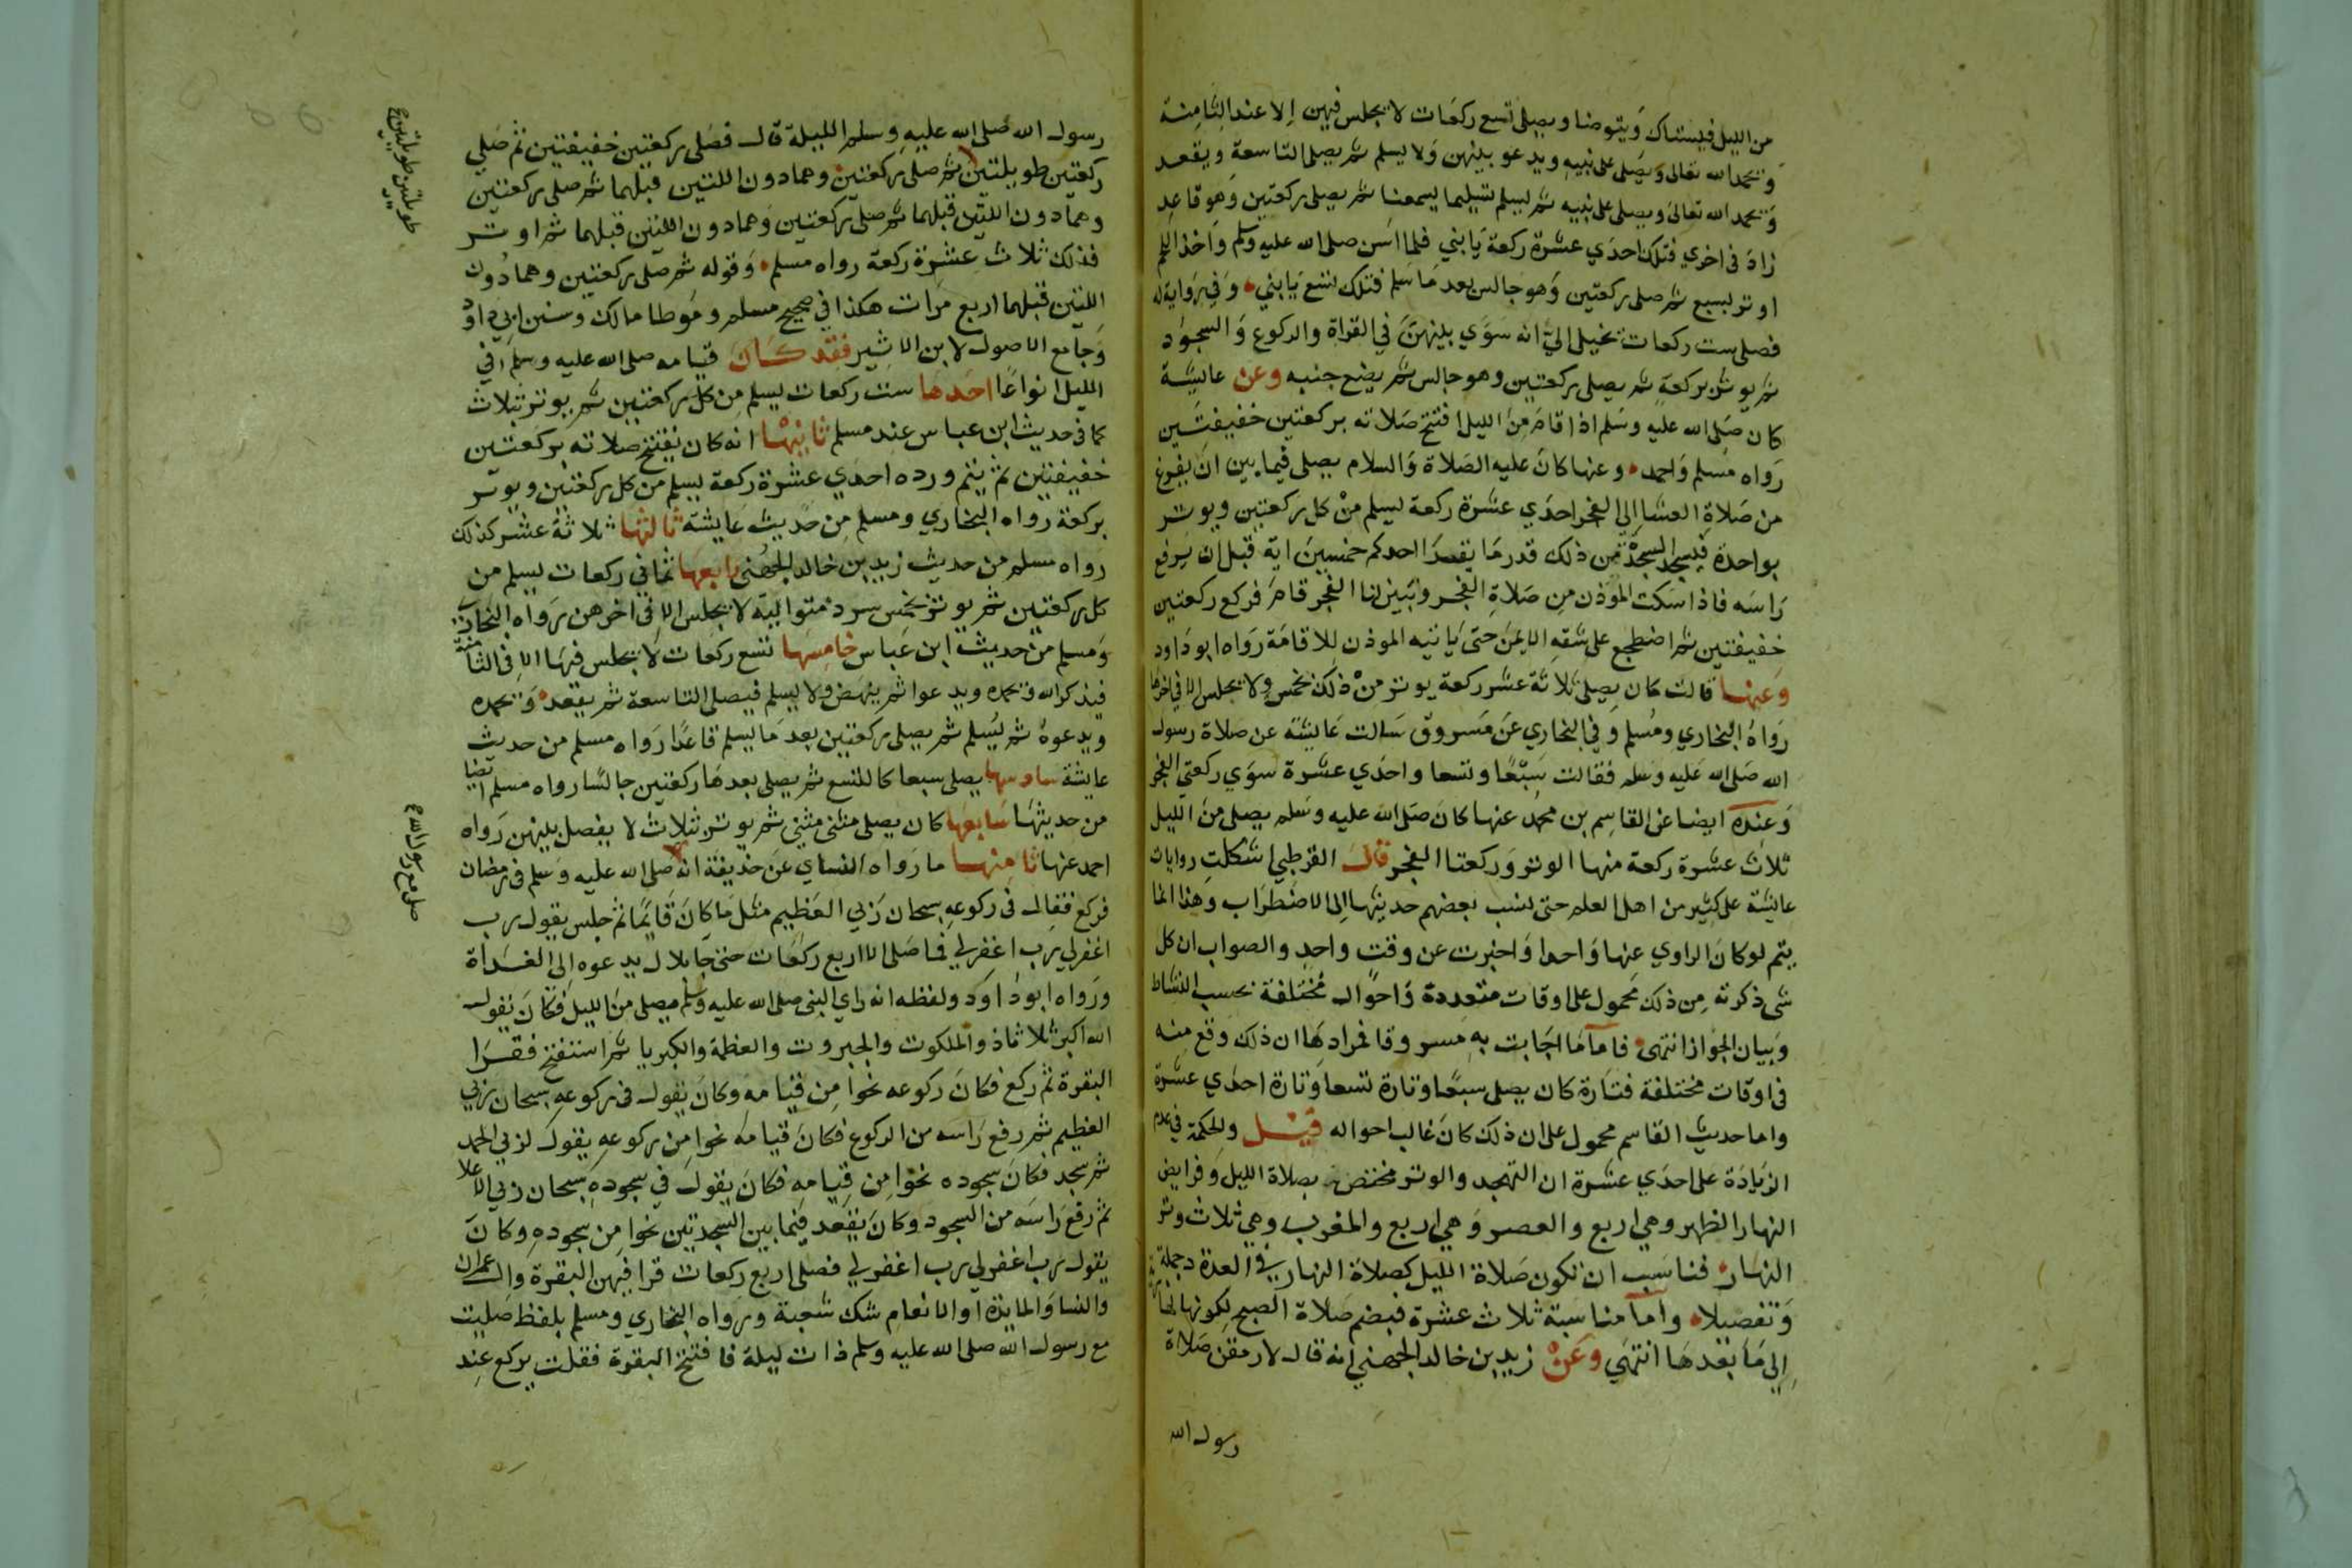 من الليل فيستاك ويتوضا ويصلي تسع ركعات لا يجلس فيهن الا عند الثامنة
ويحمد الله تعالى ويصلي على نبيه ويدعو بينهن ولا يسلم ثم يصلي التاسعة ويقعد
ويحمد الله تعالى ويصلي على نبيه ثم يسلم تسليما يسمعنا ثم يصلي ركعتين وهو قاعد
زاد في اخري فتلك احدي عشرة ركعة يا بني فلما اسن صلى الله عليه وسلم واخذ اللحم
اوتر بسبع ثم صلى ركعتين وهو جالس بعد ما سلم فتلك تسع يا بني وفي رواية له
فصلى ست ركعات تخيل الي انه سوي بينهن في القراة والركوع والسجود
ثم يوتر بركعة ثم يصلي ركعتين وهو جالس ثم يضع جنبه وعن عايشة
كان صلى الله عليه وسلم اذا قام من الليل افتتح صلاته بركعتين خفيفتين
رواه مسلم واحمد وعنها كان عليه الصلاة والسلام يصلي فيما بين ان يفرغ
من صلاة العشا الي الفجر احدي عشرة ركعة يسلم من كل ركعتين ويوتر
بواحدة فيسجد السجدة من ذلك قدر ما يقرا احدكم خمسين اية قبل ان يرفع
راسه فاذا سكت الموذن من صلاة الفجر وتبين لنا الفجر قام فركع ركعتين
خفيفتين ثم اضطجع على شقه الايمن حتى ياتيه الموذن للاقامة رواه ابو داود
وعنها قالت كان يصلي ثلاثة عشر ركعة يوتر من ذلك بخمس ولا يجلس الا في اخرها
رواه البخاري ومسلم وفي البخاري عن مسروق سالت عايشة عن صلاة رسول
الله صلى الله عليه وسلم فقالت سبعا وتسعا واحدي عشرة سوي ركعتي الفجر
وعنده ايضا عن القاسم بن محمد عنها كان صلى الله عليه وسلم يصلي من الليل
ثلاث عشرة ركعة منها الوتر وركعتا الفجر قال القرطبي اشكلت روايات
عايشة على كثير من اهل العلم حتى نسب بعضهم حديثها الى الاضطراب وهذا انما
يتم لو كان الراوي عنها واحدا واخبرت عن وقت واحد والصواب ان كل
شي ذكرته من ذلك محمول على اوقات متعددة واحوال مختلفة بحسب النشاط
وبيان الجواز انتهى فاما ما اجابت به مسروقا فمرادها ان ذلك وقع منه
في اوقات مختلفة فتارة كان يصلي سبعا وتارة تسعا وتارة احدي عشرة
واما حديث القاسم محمول على ان ذلك كان غالب احواله قيل والحكمة في عدم
الزيادة على احدي عشرة ان التهجد والوتر مختص بصلاة الليل وفرايض
النهار الظهر وهي اربع والعصر وهي اربع والمغرب وهي ثلاث وتر
النهار فناسب ان تكون صلاة الليل كصلاة النهار في العدة جملة
وتفصيلا واما مناسبة ثلاث عشرة فبضم صلاة الصبح لكونها نهارية
الي ما بعدها انتهي وعن زيد بن خالد الجهني انه قال لارمقن صلاة
رسول الله
رسول الله صلى الله عليه وسلم الليلة قال فصلى ركعتين خفيفتين ثم صلى
ركعتين طويلتين ثم صلى ركعتين وهما دون اللتين قبلهما ثم صلى ركعتين
وهما دون اللتين قبلهما ثم صلى ركعتين وهما دون اللتين قبلهما ثم اوتر
فذلك ثلاث عشرة ركعة رواه مسلم وقوله ثم صلى ركعتين وهما دون
اللتين قبلهما اربع مرات هكذا في صحيح مسلم وموطا مالك وسنن ابي داود
وجامع الاصول لابن الاثير فقد كان قيامه صلى الله عليه وسلم في
الليل انواعا احدها ست ركعات يسلم من كل ركعتين ثم يوتر بثلاث
كما في حديث ابن عباس عند مسلم ثانيها انه كان يفتتح صلاته بركعتين
خفيفتين ثم يتم ورده احدي عشرة ركعة يسلم من كل ركعتين ويوتر
بركعة رواه البخاري ومسلم من حديث عايشة ثالثها ثلاثة عشر كذلك
رواه مسلم من حديث زيد بن خالد الجهني رابعها ثماني ركعات يسلم من
كل ركعتين ثم يوتر بخمس سرد متوالية لا يجلس الا في اخرهن رواه البخاري
ومسلم من حديث ابن عباس خامسها تسع ركعات لا يجلس فيها الا في الثامنة
فيذكر الله ويحمده ويدعوا ثم ينهض ولا يسلم فيصلي التاسعة ثم يقعد ويحمده
ويدعوه ثم يسلم ثم يصلي ركعتين بعد ما يسلم قاعدا رواه مسلم من حديث
عايشة سادسها يصلي سبعا كالتسع ثم يصلي بعدها ركعتين جالسا رواه مسلم ايضا
من حديثها سابعها كان يصلي مثنى مثنى ثم يوتر بثلاث لا يفصل بينهن رواه
احمد عنها ثامنها ما رواه النساي عن حذيفة انه صلى الله عليه وسلم في رمضان
فركع فقال في ركوعه سبحان ربي العظيم مثل ما كان قايما ثم جلس يقول رب
اغفرلي رب اغفرلي فما صلى الا اربع ركعات حتى جا بلال يدعوه الى الغداة
ورواه ابو داود ولفظه انه راي النبي صلى الله عليه وسلم يصلي من الليل فكان يقول
الله اكبر ثلاثا ذو الملكوت والجبروت والعظمة والكبريا ثم استفتح فقرا
البقرة ثم ركع فكان ركوعه نحوا من قيامه وكان يقول في ركوعه سبحان ربي
العظيم ثم رفع راسه من الركوع فكان قيامه نحوا من ركوعه يقول لربي الحمد
ثم سجد فكان سجوده نحوا من قيامه فكان يقول في سجوده سبحان ربي الاعلا
ثم رفع راسه من السجود وكان يقعد فيما بين السجدتين نحوا من سجوده وكان
يقول رب اغفرلي رب اغفرلي فصلى اربع ركعات قرا فيهن البقرة وال عمران
والنسا والمايدة او الانعام شك شعبة ورواه البخاري ومسلم بلفظ صليت
مع رسول الله صلى الله عليه وسلم ذات ليلة فافتتح البقرة فقلت يركع عند
طويلتين طويلتين صح
صلى مع رسول الله صح